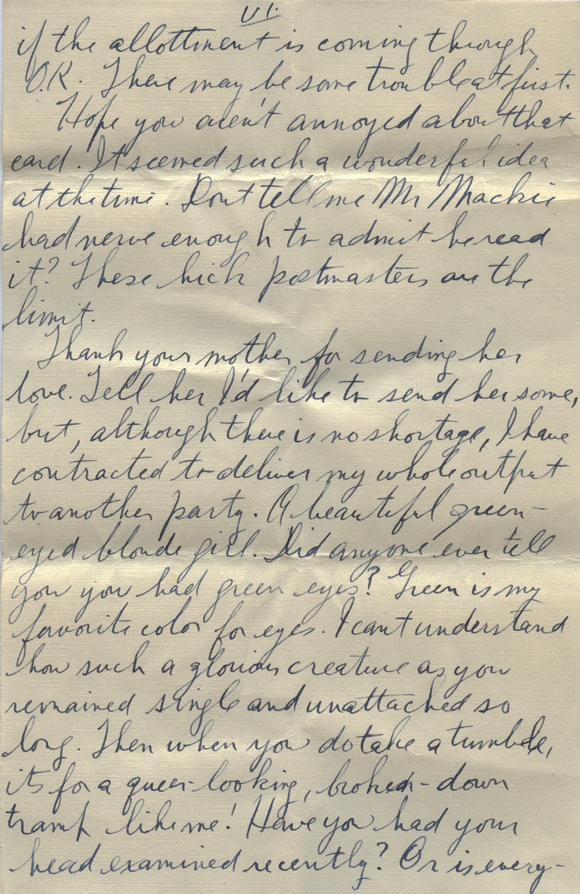 VI.
if the allottment is coming through
O.K. There may be some trouble at first.
Hope you aren't annoyed about that
card. It seemed such a wonderful idea
at the time. Dont tell me Mr Mackie
had nerve enough to admit he read
it? These hick postmasters are the
limit.
Thank your mother for sending her
love. Tell her I'd like to send her some,
but, although there is no shortage, I have
contracted to deliver my whole output
to another party. A beautiful green-
eyed blonde girl. Did anyone ever tell
you you had green eyes? Green is my
favorite color for eyes. I cant understand
how such a glorious creature as you
remained single and unattached so
long. Then when you do take a tumble,
its for a queer-looking, broken-down
tramp like me! Have you had your
head examined recently? Or is every-